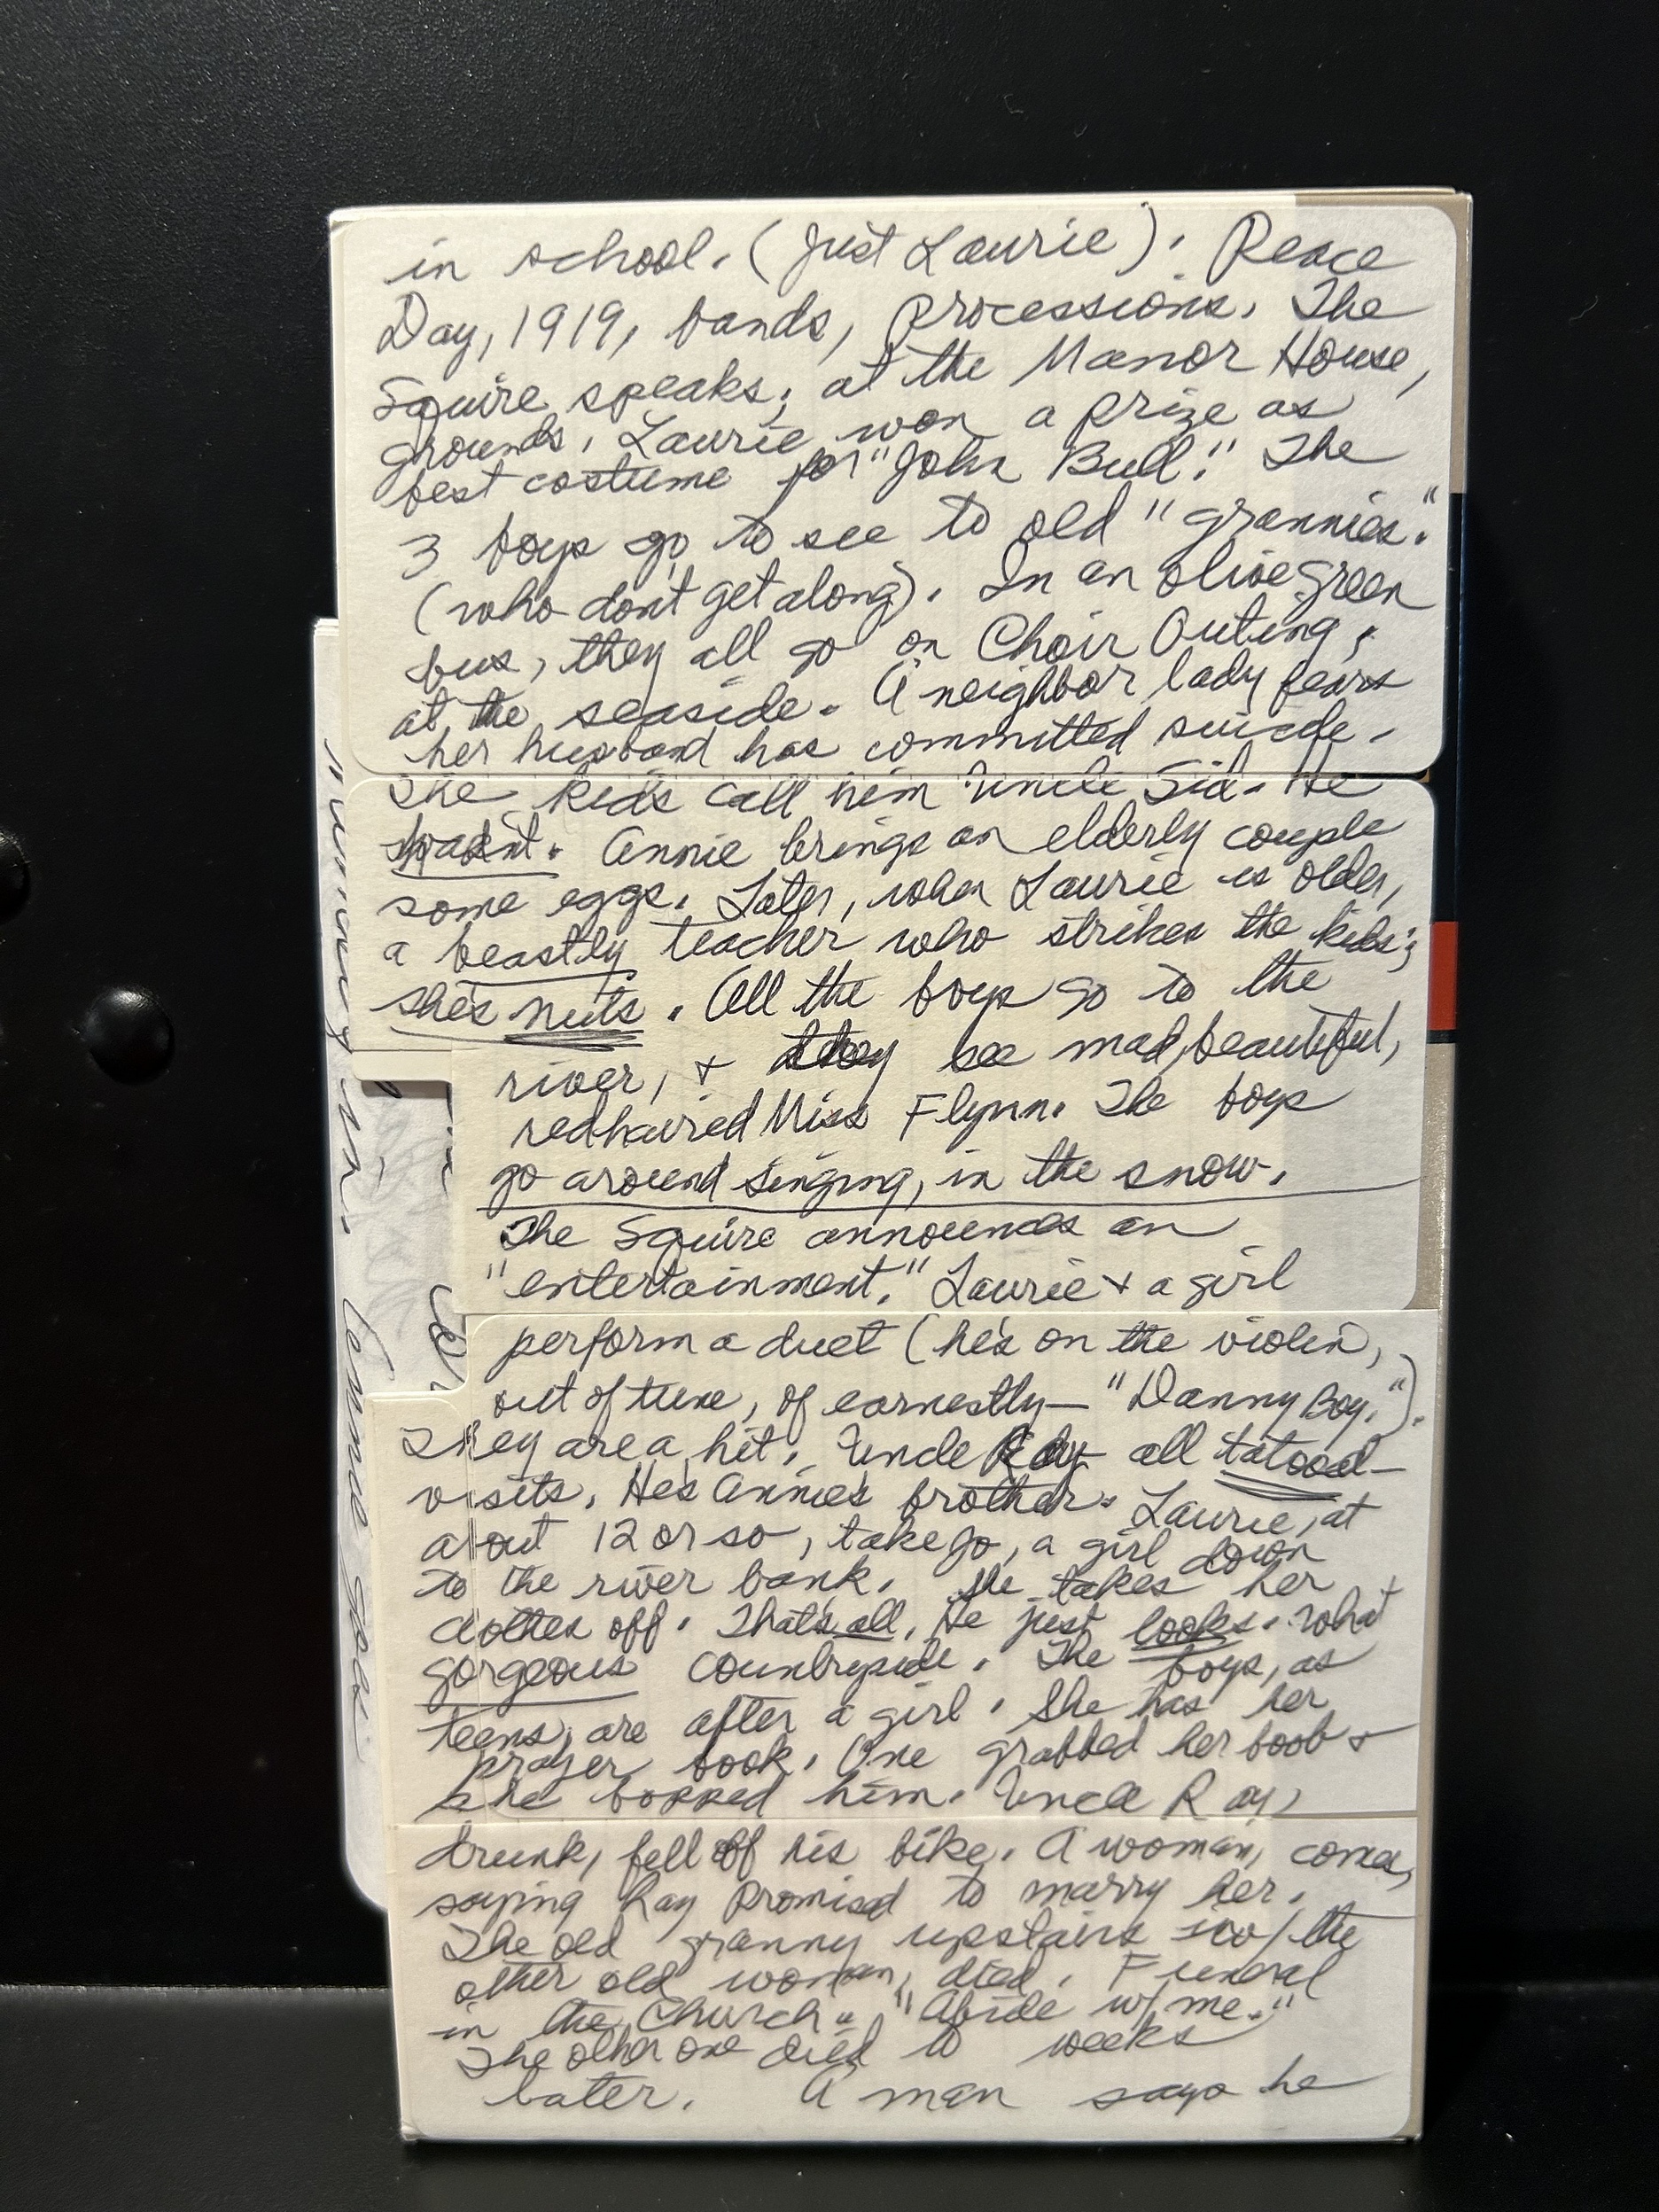 in school. (Just Laurie). Peace
Day, 1919, bands, processions. The
Squire speaks; at the Manor House,
grounds. Laurie won a prize as
best costume for "John Bull." The
3 boys go to see to old "grannies."
(who don't get along). In an olive green
bus, they all go on Choir Outing,
at the seaside. A neighbor lady fears
her husband has committed suicide.
The kids call him Uncle Sid. He
hadn't. Annie brings an elderly couple
some eggs. Later, when Laurie is older,
a beastly teacher who strikes the kids;
she's nuts. All the boys go to the
river, + they see mad, beautiful,
redhaired Miss Flynn. The boys
go around singing, in the snow.
The Squire announces an
"entertainment." Laurie + a girl
perform a duet (he's on the violin,
out of tune, of earnestly— "Danny Boy.").
They are a hit. Uncle Ray— all tatooed—
visits. He's Annie's brother. Laurie, at
about 12 or so, take Jo, a girl down
to the river bank. He takes her
clothes off. That's all. He just looks. What
gorgeous countryside. The boys, as
teens, are after a girl. She has her
prayer book. One grabbed her boob +
she bopped him. Uncle Ray,
drunk, fell off his bike. A woman, comes,
saying Ray promised to marry her.
The old granny upstairs w/ the
other old woman, died. Funeral
in the Church. "Abide w/ me."
The other one died weeks
later. A man says he